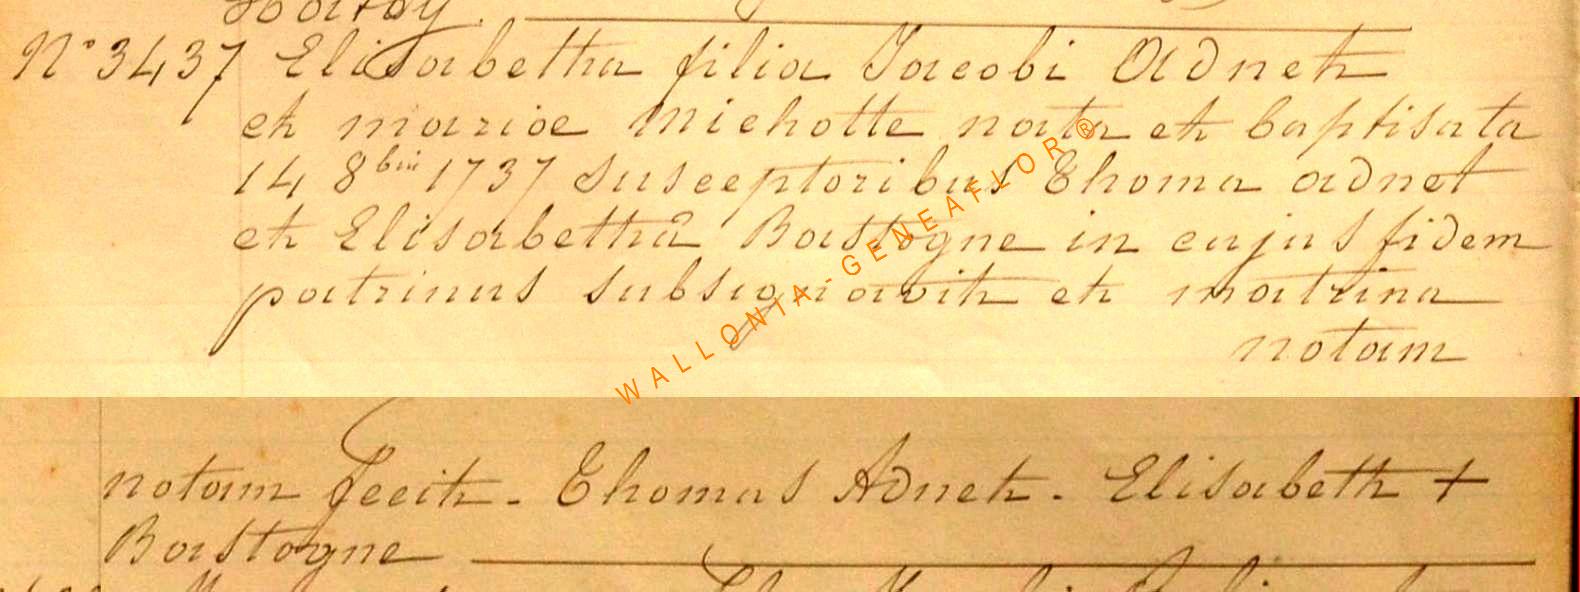 N° 3437 Elisabetha filia Jacobi Adnet
et mariae Michotte nata et baptisata
14 8bris 1737 Susceptoribus Thoma adnet
et Elisabetha Bastogne in cujus fidem
patrinus subsignavit et matrina
notam
WALLONIA-GENEAFLOR®
notam fecit. Thomas Adnet. Elisabeth +
Bastogne